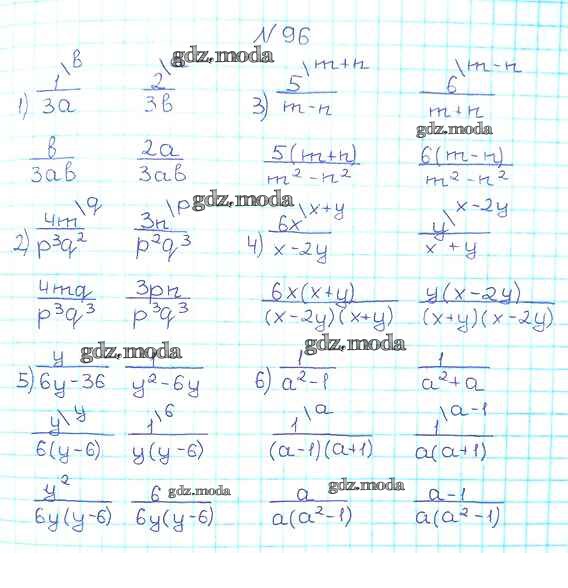 № 96
gdz.moda
1) 1\в/3a 2/3в 3) 5\m+n/m-n 6\m-n/m+n
gdz.moda
в/3aв 2a/3aв 5(m+n)/m²-n² 6(m-n)/m²-n²
gdz.moda
2) 4m\q/p³q² 3n\p/p²q³ 4) 6x\x+y/x-2y y\x-2y/x+y
4mq/p³q³ 3pn/p³q³ 6x(x+y)/(x-2y)(x+y) y(x-2y)/(x+y)(x-2y)
gdz.moda gdz.moda
5) y/6y-36 1/y²-6y 6) 1/a²-1 1/a²+a
y\y/6(y-6) 1\6/y(y-6) 1\a/(a-1)(a+1) 1\a-1/a(a+1)
gdz.moda gdz.moda
y²/6y(y-6) 6/6y(y-6) a/a(a²-1) a-1/a(a²-1)